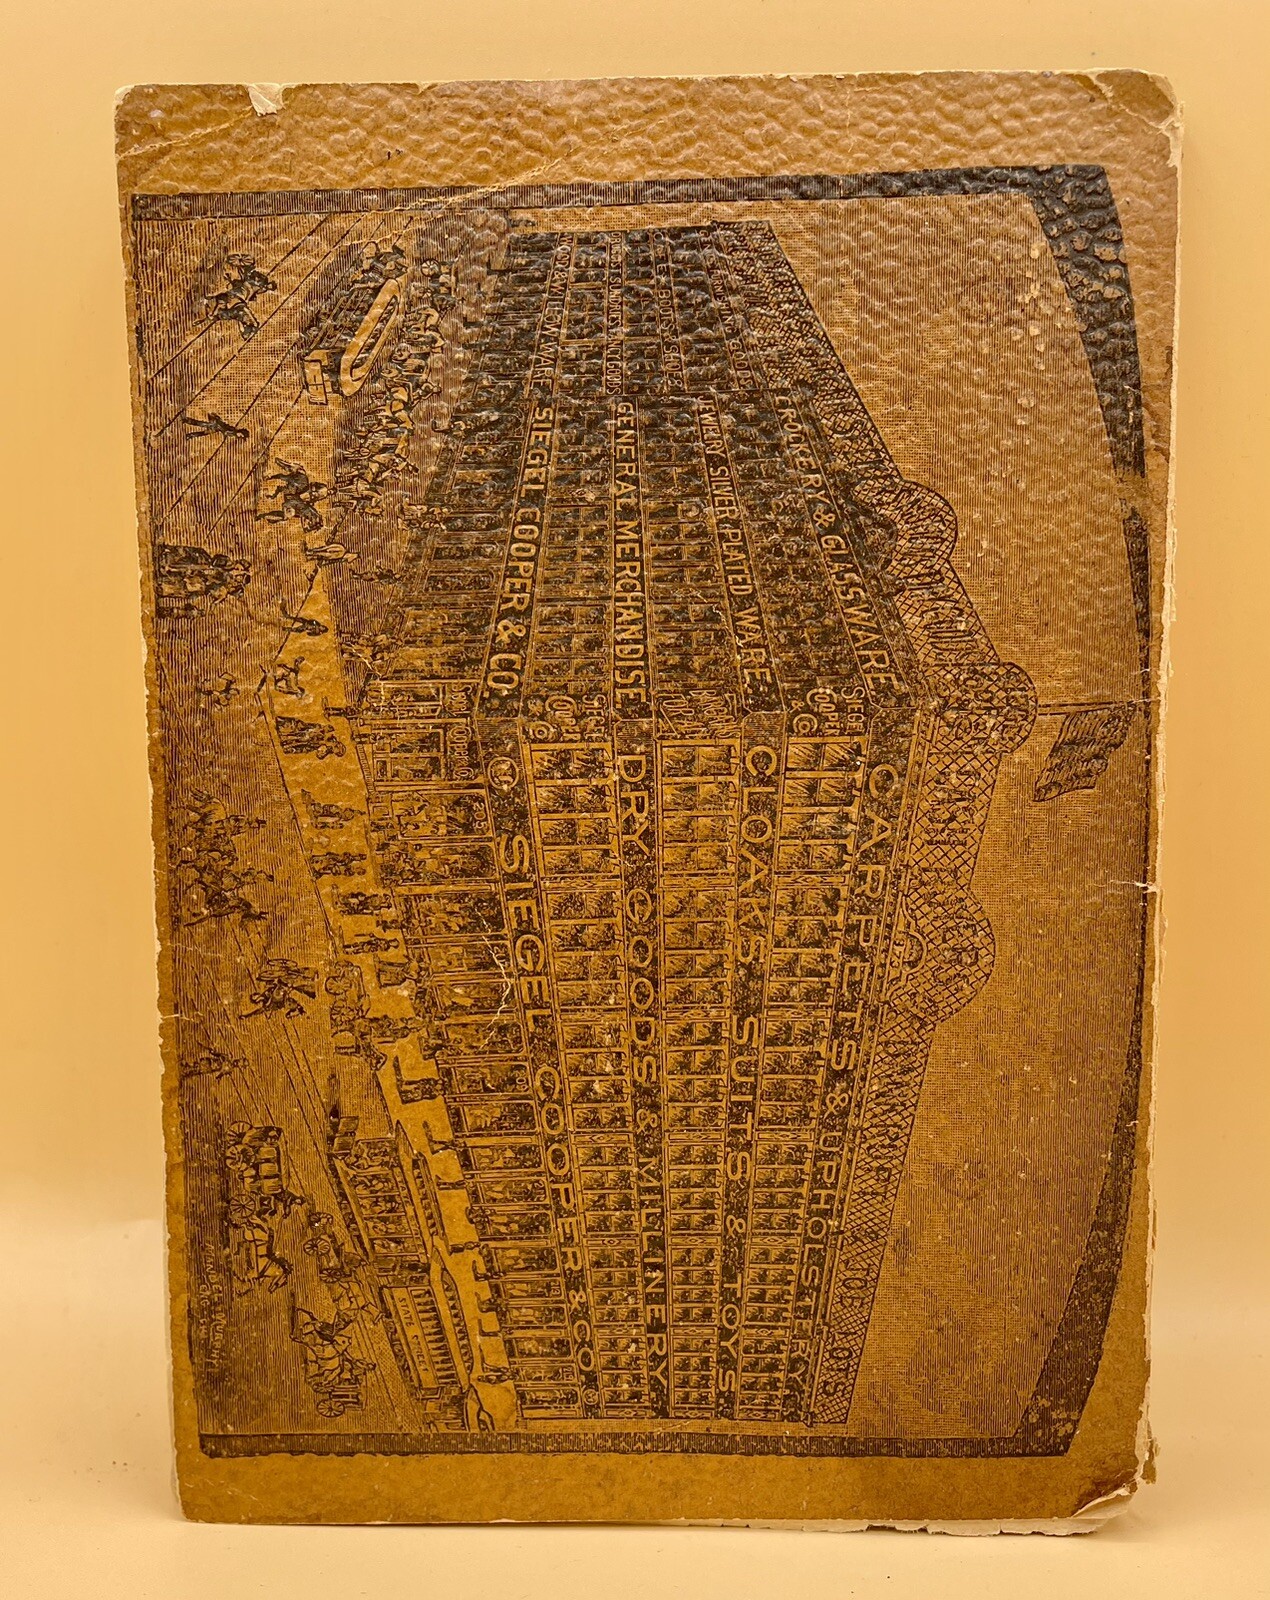 CROCKERY & GLASSWARE
JEWELRY, SILVER PLATED WARE.
BOOTS & SHOES
GENERAL MERCHANDISE
SIEGEL COOPER & CO.
WOOD & WILLOW WARE
SIEGEL
COOPER
& Co
SIEGEL
COOPER
& Co
CARPETS & UPHOLSTRY
CLOAKS, SUITS & TOYS
DRY GOODS & MILLINERY
SIEGEL COOPER & CO.
STATE STREET